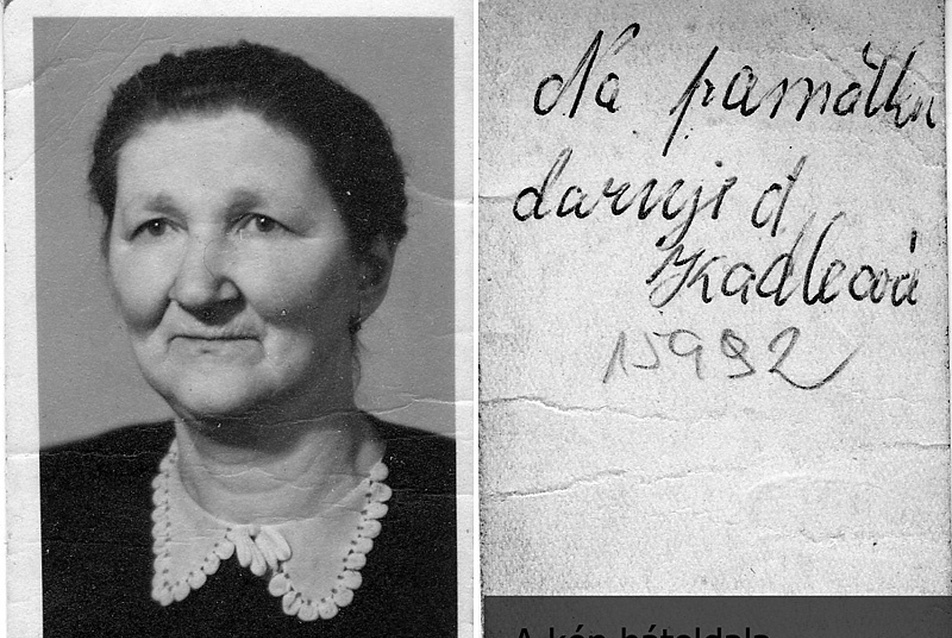 Na památku
daruje d
Kadlecová
15992
A kép hátoldala